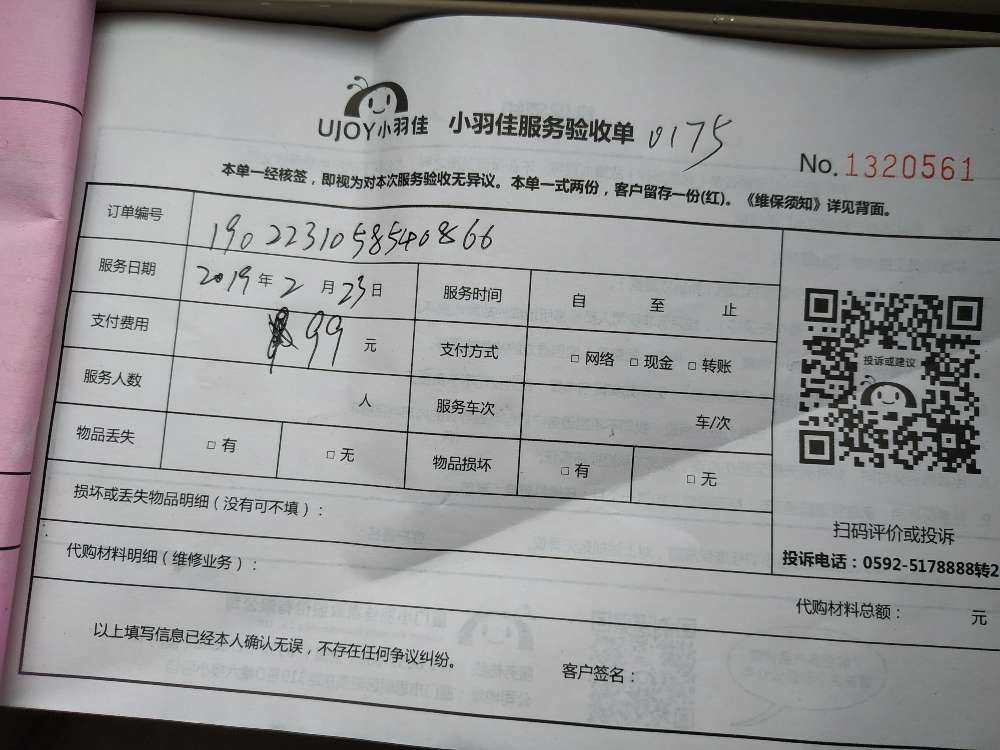 UJOY小羽佳 小羽佳服务验收单 0175
No. 1320561
本单一经核签，即视为对本次服务验收无异议。本单一式两份，客户留存一份(红)。《维保须知》详见背面。
订单编号 19022310585408566
服务日期 2019年2月23日 服务时间 自 至 止
支付费用 99元 支付方式 □ 网络 □ 现金 □ 转账
服务人数 人 服务车次 车/次
物品丢失 □ 有 □ 无 物品损坏 □ 有 □ 无
投诉或建议
扫码评价或投诉
投诉电话：0592-5178888转2
损坏或丢失物品明细（没有可不填）：
代购材料明细（维修业务）：
代购材料总额： 元
以上填写信息已经本人确认无误，不存在任何争议纠纷。
客户签名：